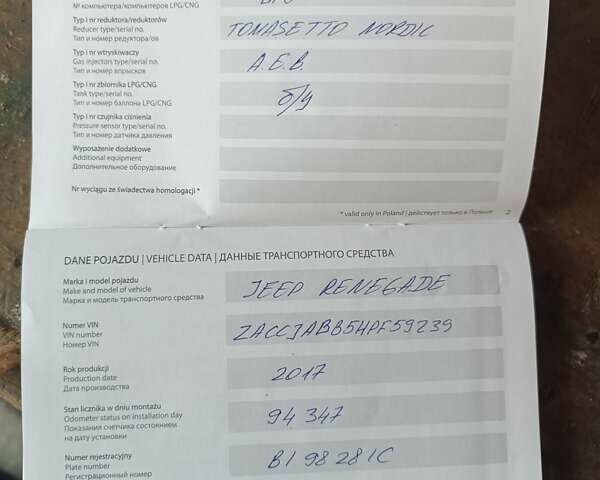 № компьютера/компьютеров LPG/CNG
Typ i nr reduktora/reduktorów
Reducer type/serial no.
Тип и номер редуктора/ов
TOMASETTO NORDIC
Typ i nr wtryskiwaczy
Gas injectors type/serial no.
Тип и номер впрысков
A.E.B.
Typ i nr zbiornika LPG/CNG
Tank type/serial no.
Тип и номер баллона LPG/CNG
б/у
Typ i nr czujnika ciśnienia
Pressure sensor type/serial no.
Тип и номер датчика давления
Wyposażenie dodatkowe
Additional equipment
Дополнительное оборудование
Nr wyciągu ze świadectwa homologacji *
* valid only in Poland | действует только в Польше
2
DANE POJAZDU | VEHICLE DATA | ДАННЫЕ ТРАНСПОРТНОГО СРЕДСТВА
Marka i model pojazdu
Make and model of vehicle
Марка и модель транспортного средства
JEEP RENEGADE
Numer VIN
VIN number
Номер VIN
ZACCJABB5HPF59239
Rok produkcji
Production date
Дата производства
2017
Stan licznika w dniu montażu
Odometer status on installation day
Показания счетчика состоянием
на дату установки
94 347
Numer rejestracyjny
Plate number
Регистрационный номер
BI 98 28 IC